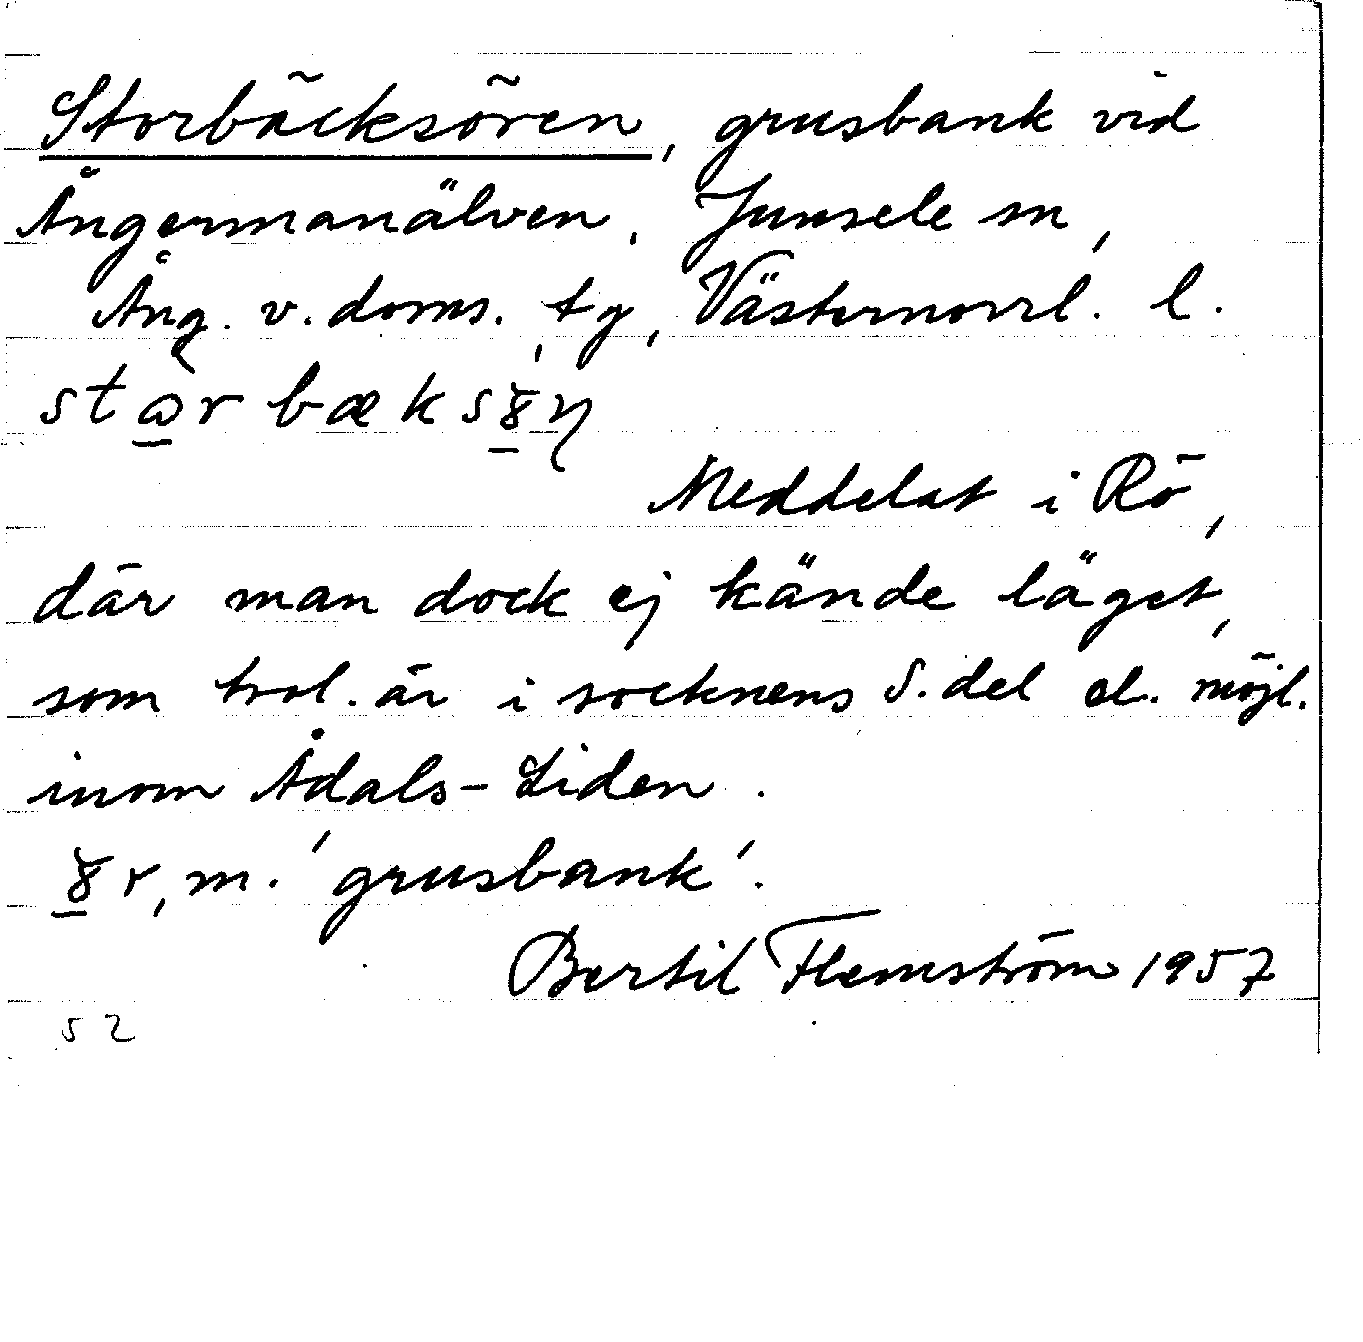 Storbäcksören, grusbank vid
Ångermanälven. Junsele sn,
Ång. v. doms. tg, Västernorrl. l.
Meddelat i Rö,
där man dock ej kände läget,
som trol. är i socknens S. del el. möjl.
inom Ådals-Liden.
r, m. 'grusbank'.
Bertil Flemström 1957
52